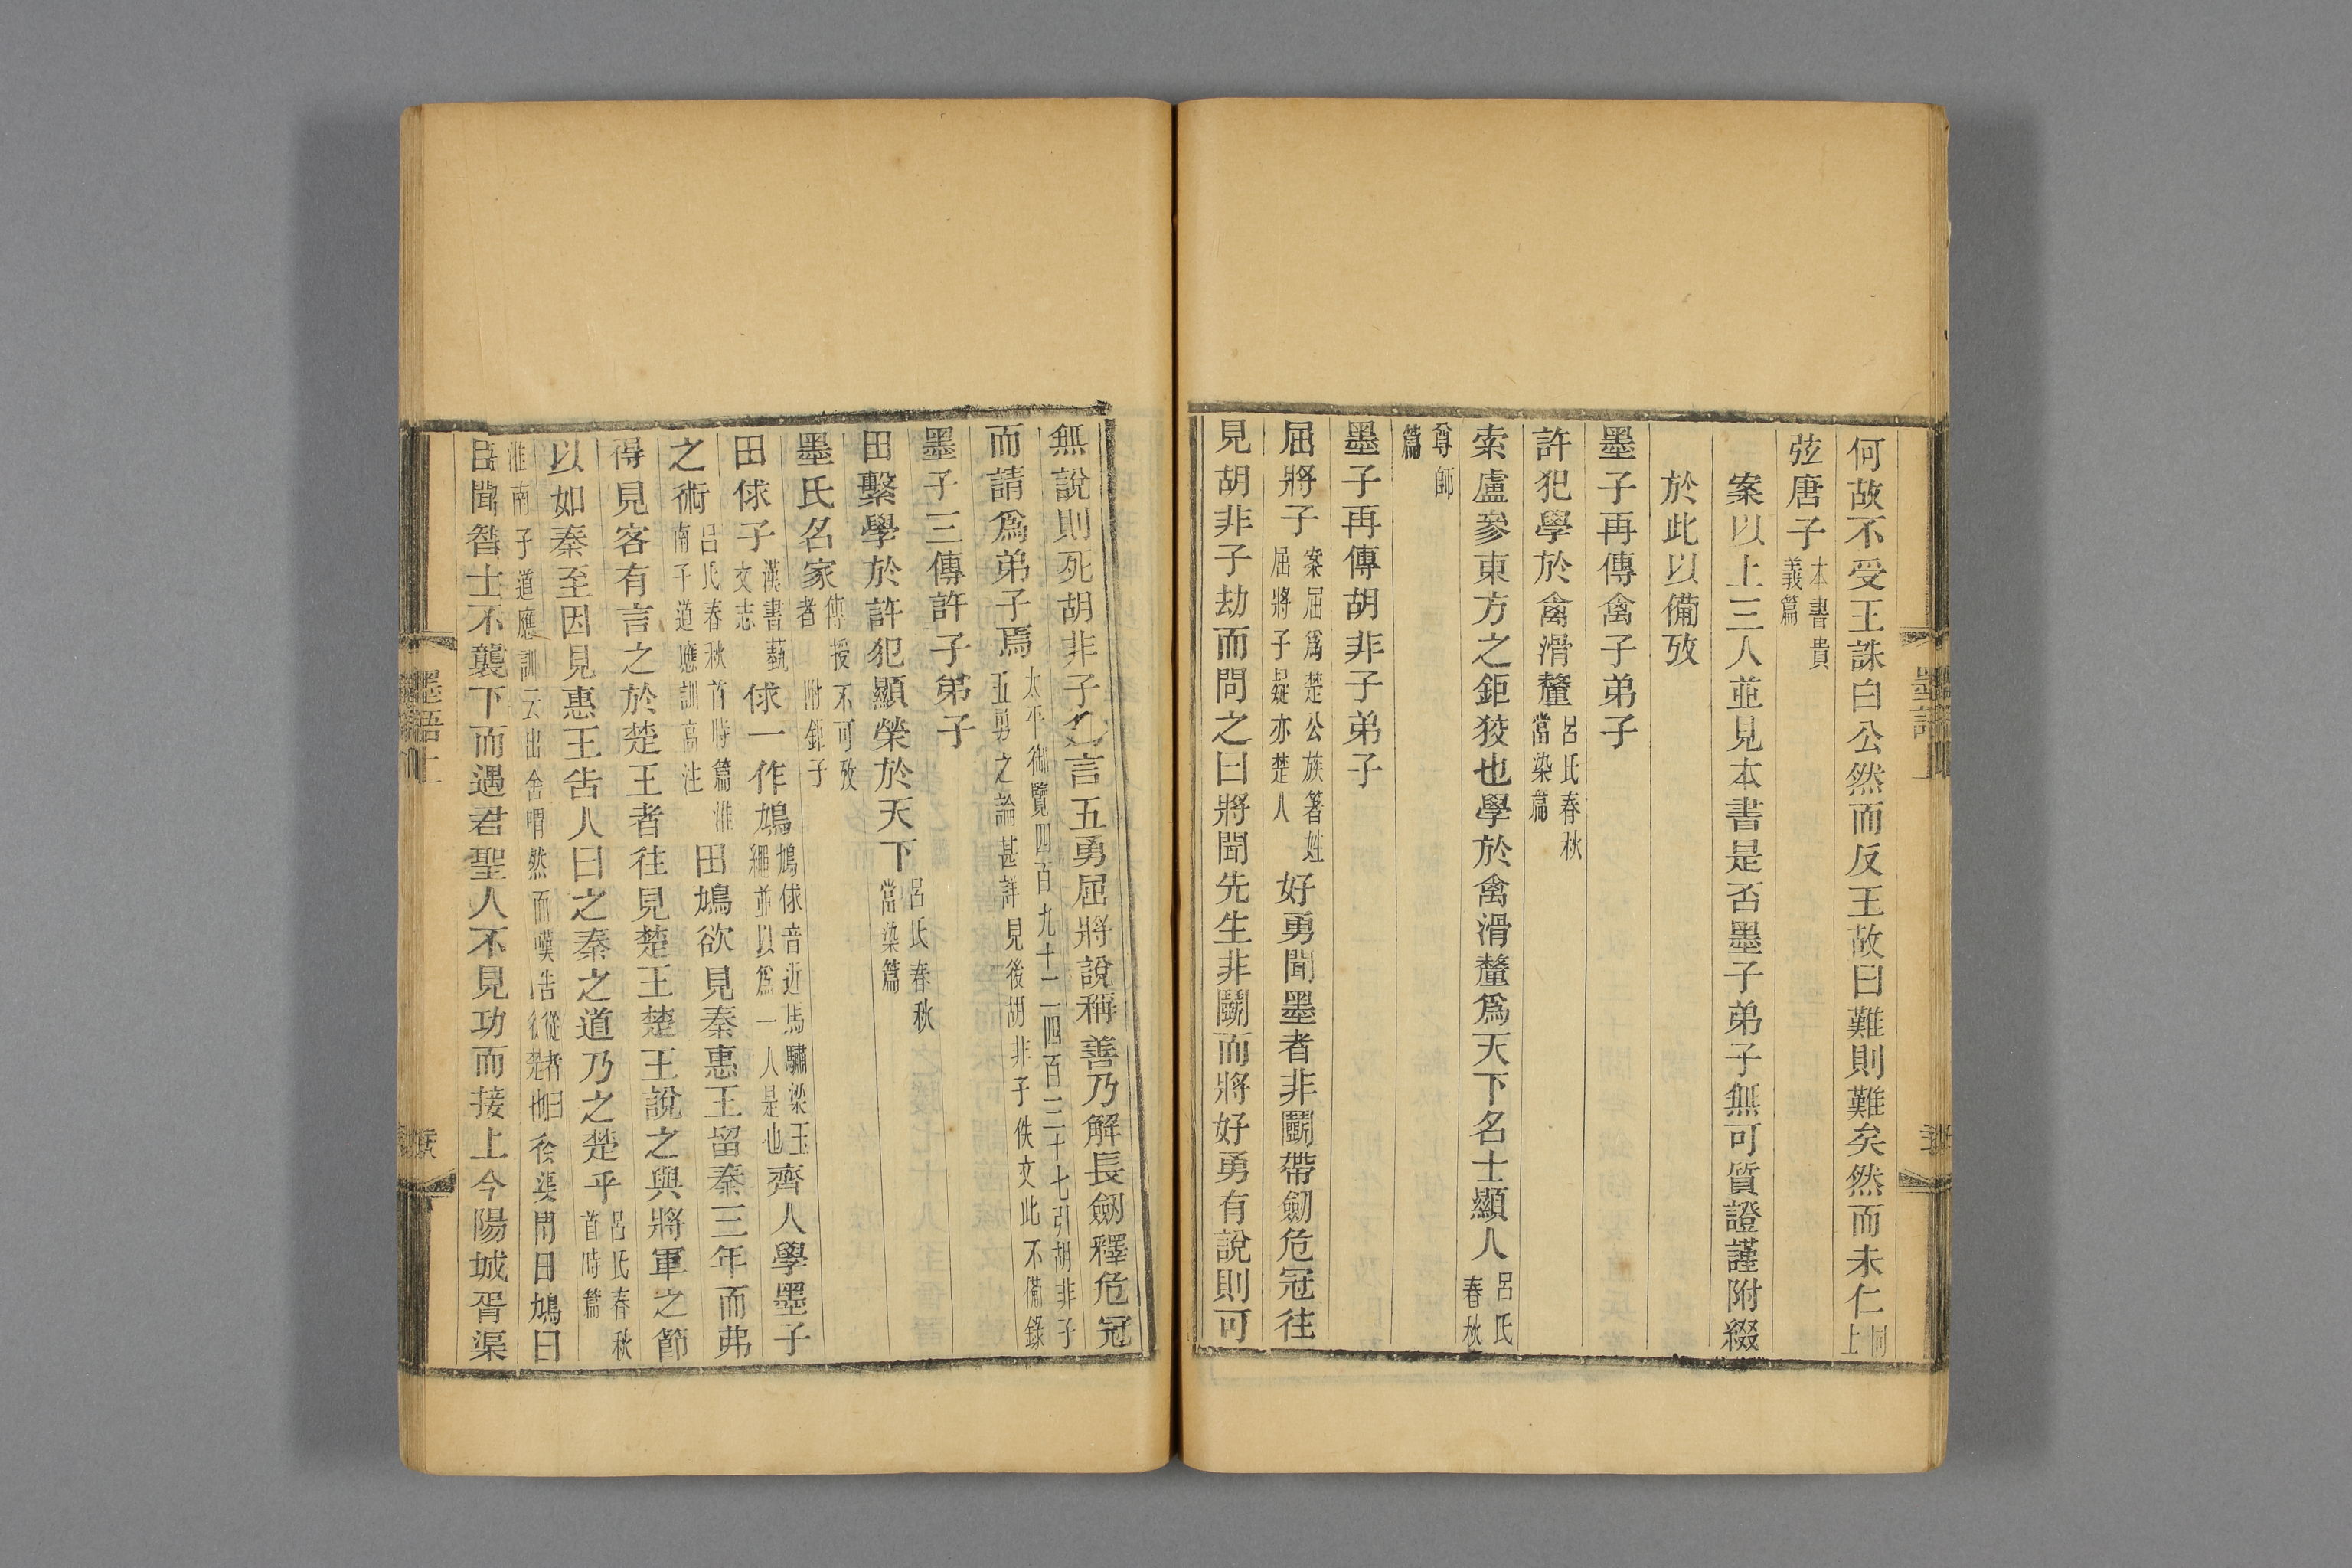 何故不受王誅白公然而反王故曰難則難矣然而未仁同上
弦唐子本書貴義篇
案以上三人並見本書是否墨子弟子無可質證謹附綴
於此以備攷
墨子再傳禽子弟子
許犯學於禽滑釐呂氏春秋當染篇
索盧參東方之鉅狡也學於禽滑釐爲天下名士顯人呂氏春秋
尊師篇
墨子再傳胡非子弟子
屈將子案屈爲楚公族箸姓屈將子疑亦楚人好勇聞墨者非鬬帶劒危冠往
見胡非子劫而問之曰將聞先生非鬬而將好勇有說則可
無說則死胡非子爲言五勇屈將說稱善乃解長劒釋危冠
而請爲弟子焉太平御覽四百九十二四百三十七引胡非子五勇之論甚詳見後胡非子佚文此不備錄
墨子三傳許子弟子
田繫學於許犯顯榮於天下呂氏春秋當染篇
墨氏名家傳授不可攷者附鉅子
田俅子漢書藝文志俅一作鳩鳩俅音近馬驌梁玉繩並以爲一人是也齊人學墨子
之術呂氏春秋首時篇淮南子道應訓高注田鳩欲見秦惠王留秦三年而弗
得見客有言之於楚王者往見楚王楚王說之與將軍之節
以如秦至因見惠王告人曰之秦之道乃之楚乎呂氏春秋首時篇
淮南子道應訓云出舍喟然而嘆告從者曰徐渠問田鳩曰
臣聞智士不襲下而遇君聖人不見功而接上今陽城胥渠
墨語上